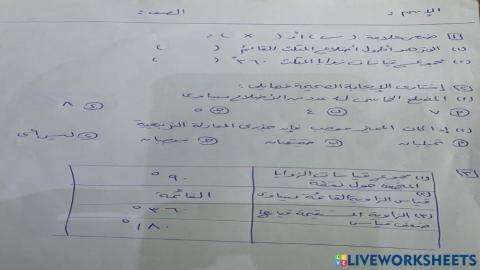 الاسم: الصف:
[1] ضعي علامة (✓) أو (×):
(1) الوتر هو أطول أضلاع المثلث القائم ( )
(2) مجموع قياسات زوايا المثلث ٣٦٠° ( )
اختاري الإجابة الصحيحة فيما يلي:
(1) المضلع الخماسي له عدد من الأضلاع يساوي
٧ ٤ ٥ ٨
(2) إذا كان المميز موجب فإن جذري المعادلة التربيعية
حقيقيان
[3]
(1) مجموع قياسات الزوايا المتجمعة حول نقطة ٩٠°
(2) قياس الزاوية القائمة يساوي القائمة
(3) الزاوية المستقيمة قياسها ٣٦٠°
ضعف قياس ١٨٠°
LIVEWORKSHEETS